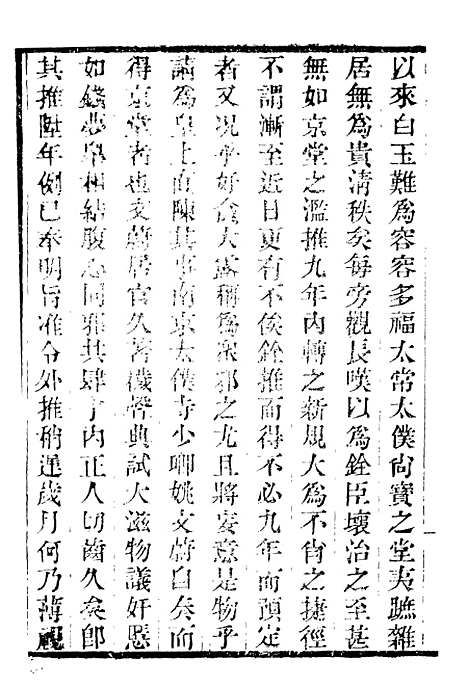 以來白玉難爲容容多福太常太僕尙寶之堂夷蹠雜
居無爲貴清秩矣每旁觀長嘆以爲銓臣壞治之至甚
無如京堂之濫推九年內轉之新規大爲不肖之捷徑
不謂漸至近日更有不俟銓推而得不必九年而預定
者又況乎好貪大露稱爲衆邪之尤且將安意是物乎
請爲皇上而陳其事南京太僕寺少卿姚文蔚白奏而
得京堂者也文蔚居官久著穢聲典試大滋物議奸慝
如錢夢皐相結腹心同邪共肆宇內正人切齒久矣卽
其推陞年例已奉明旨准令外推稍遲歲月何乃薄視